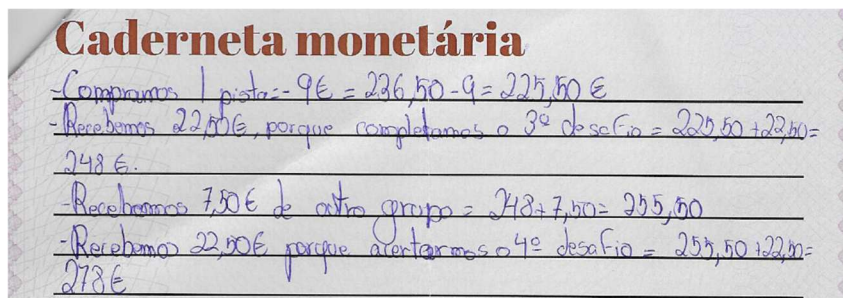 Caderneta monetária
-Compramos 1 pista:- 9€ = 236,50-9=225,50 €
-Recebemos 22,50€, porque completamos o 3º desafio = 225,50+22,50=
248 €.
-Recebemos 7,50€ de outro grupo = 248+7,50= 255,50
-Recebemos 22,50€ porque acertarmos o 4º desafio = 255,50+22,50=
278€